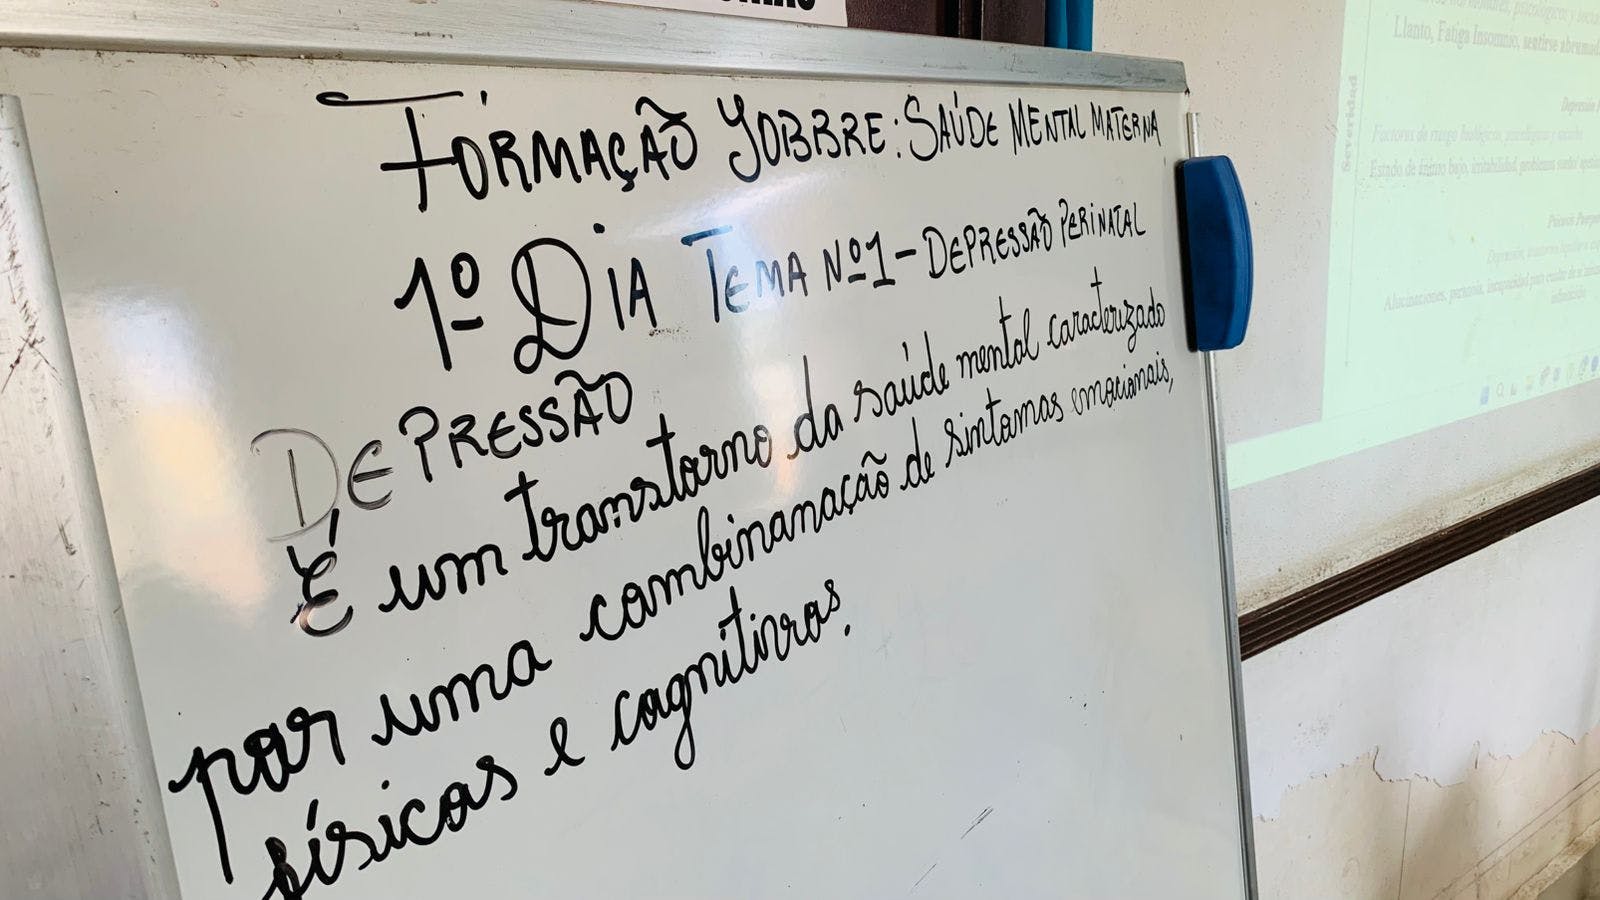 FORMAÇÃO SOBBRE: SAÚDE MENTAL MATERNA
1º DIA TEMA Nº1 - DEPRESSÃO PERINATAL
DEPRESSÃO
É um transtorno da saúde mental caracterizado
por uma combinanação de sintomas emocionais,
físicos e cognitivos.
Llanto, Fatiga Insomnio, sentirse
Severidad
Factores de riesgo biológicos, psicológicos y sociales
Estado de ánimo bajo, irritabilidad, problemas sueño
Alucinaciones, paranoia, incapacidad para cuidar de